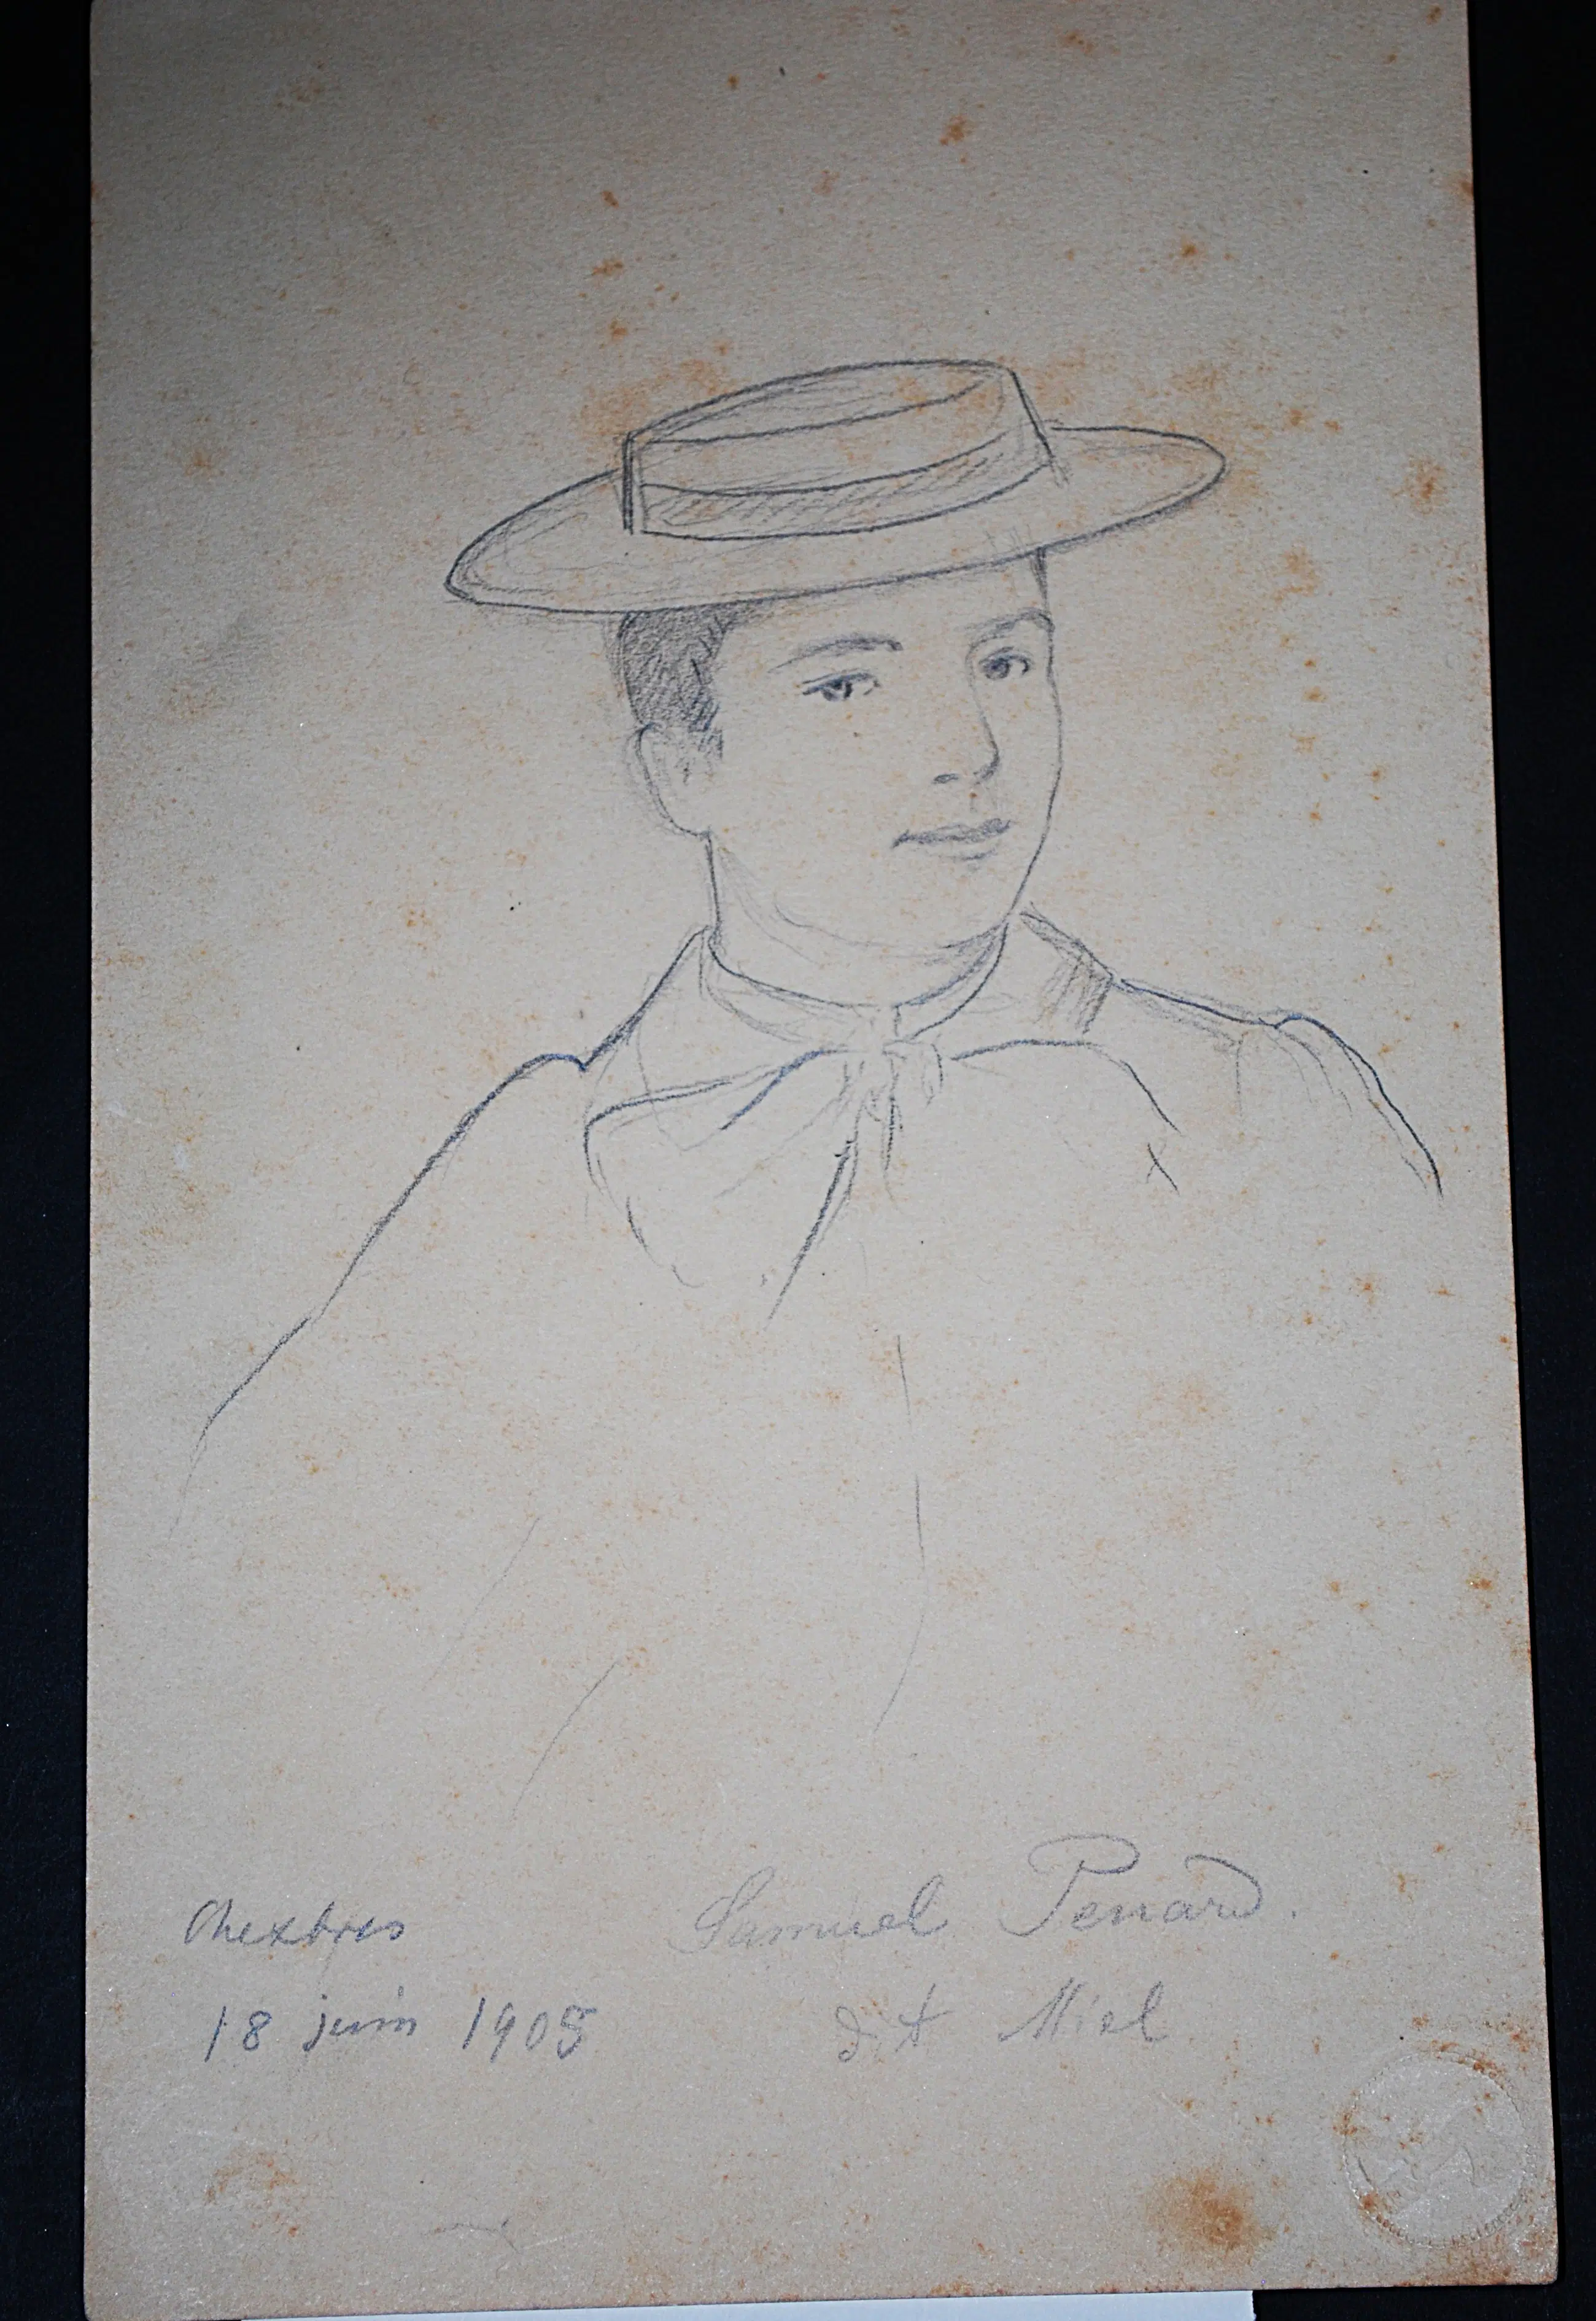 Chexbres
18 juin 1905
Samuel Penard.
dit Miel